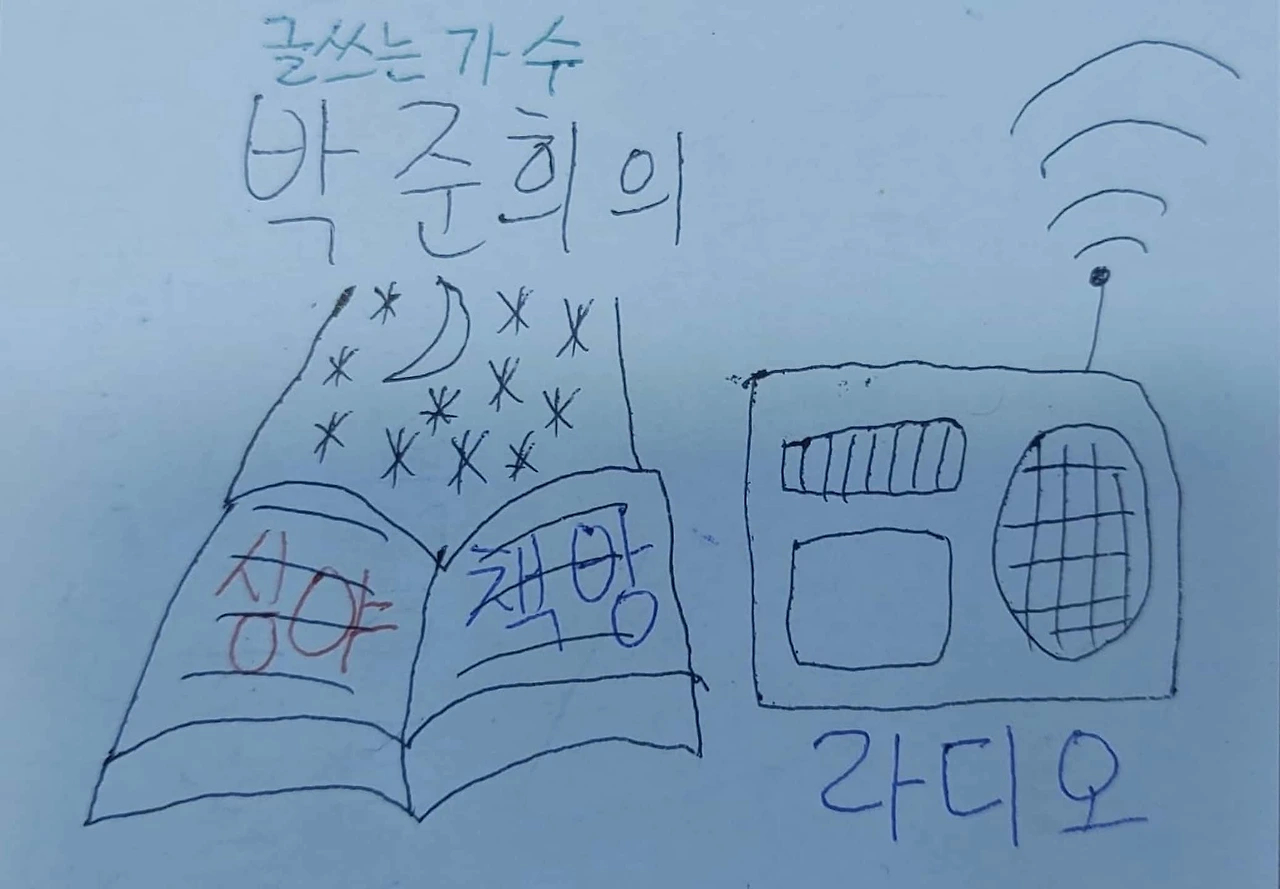 글쓰는 가수
박준희의
심야 책방
라디오